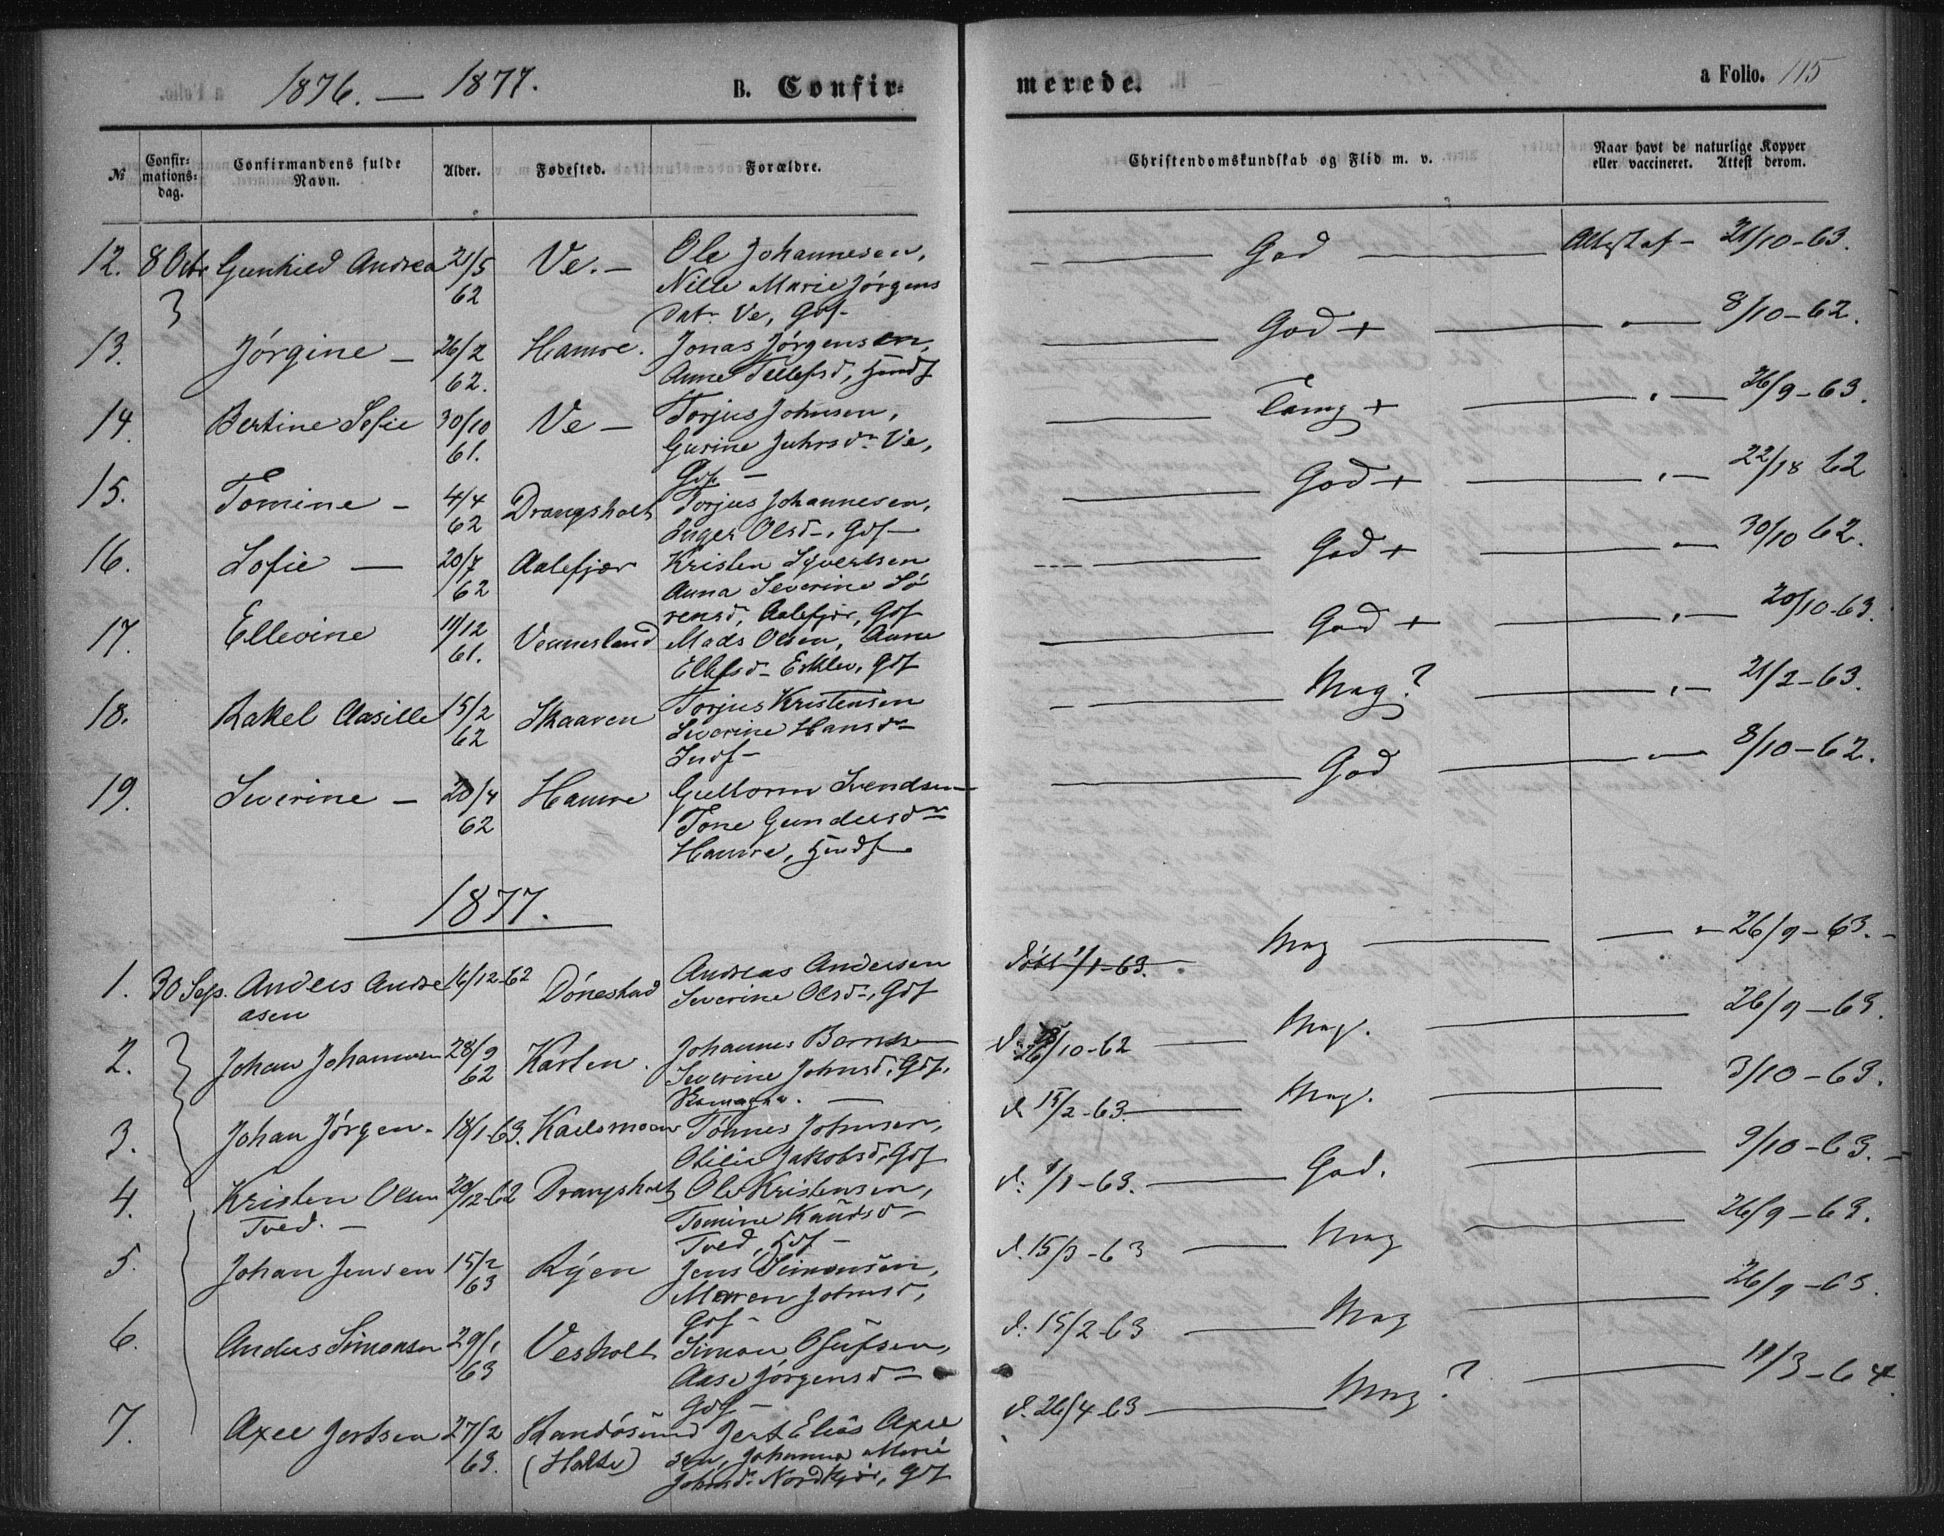 1876. — 1877. B. Confir= merede. a Folio. 115
№ Confir=mations=dag. Confirmandens fulde Navn. Alder. Fødested. Forældre. Christendomskundskab og Flid m. v. Naar havt de naturlige Kopper eller vaccineret. Attest derom.
12. 8 Octr Gunhild Andrea 21/5 62 Ve. — Ole Johannesen, God Attest af — 21/10-63.
Nille Marie Jørgens
datr Ve, Gdf —
13. Jørgine — 26/2 62. Hamre. Jonas Jørgensen, God + 8/10-62.
Anne Tellefsd, Husdf
14. Bertine Sofie 30/10 61. Ve — Torjus Johnsen, Temg + 26/9-63.
Gurine Juhrsdr Ve,
Gdf —
15. Tomine — 4/4 62 Drangsholt Torjus Johannesen, God + 22/18 62
Inger Olsd —, Gdf —
16. Sofie — 20/7 62 Aalefjær Kristen Syvertsen God + 30/10 62.
Anna Severine Sö
rensd, Aalefjær, Gdf
17. Ellevine 11/12 61. Vennesland Mads Olsen, Anne God + 20/10-63.
Ellefsd — Eskler, Gdf
18. Rakel Aasille 15/2 62 Skaaren Torjus Kristensen Mag? 21/2-63.
Severine Hansdr
Indf —
19. Severine — 20/4 62 Hamre Guttorm Svendsen God 8/10-62.
Tone Gundersdr
Hamre, Husdf
1877.
1. 30 Sep. Anders Andre 16/12-62 Dönestad Andreas Andersen döbt 1/1-63. Mag 26/9-63.
asen Severine Olsd —, Gdf
2. Johan Johannesen 28/9 62 Karlen. Johannes Berntsen d. 26/10-62 Mag. 26/9-63.
Severine Johnsd, Gdf,
3. Johan Jörgen. 18/1-63. Karlsmoen Tönnes Johnsen, d. 15/2-63. Mag. 3/10-63.
Otilie Jakobsd, Gdf
4. Kristen Olsen 20/12-62 Drangsholt Ole Kristensen, d: 1/1-63. God. 9/10-63.
Tved. — Tomine Knudsd —
Tved, Gdf —
5. Johan Jensen 15/2 63 Ryen Jens Simonsen, d. 15/3-63 Mag 26/9-63.
Maren Johnsd,
Gdf —
6. Anders Simonsen 29/1 63 Vesholt Simon Olufsen, d: 15/2-63 Mag 26/9-63.
Aase Jörgensd —
Gdf —
7. Axel Jertsen 27/2 63. Randösund Jert Elias Axel d. 26/4-63 Mag? 11/3-64.
(Holte) sen, Johanna Marie
Johnsd. Nordkjær, Gdf